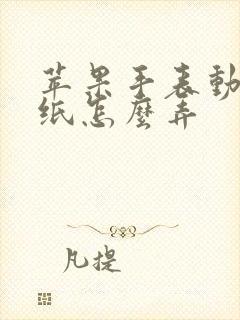 苹果手表動
纸怎麽弄
凡提